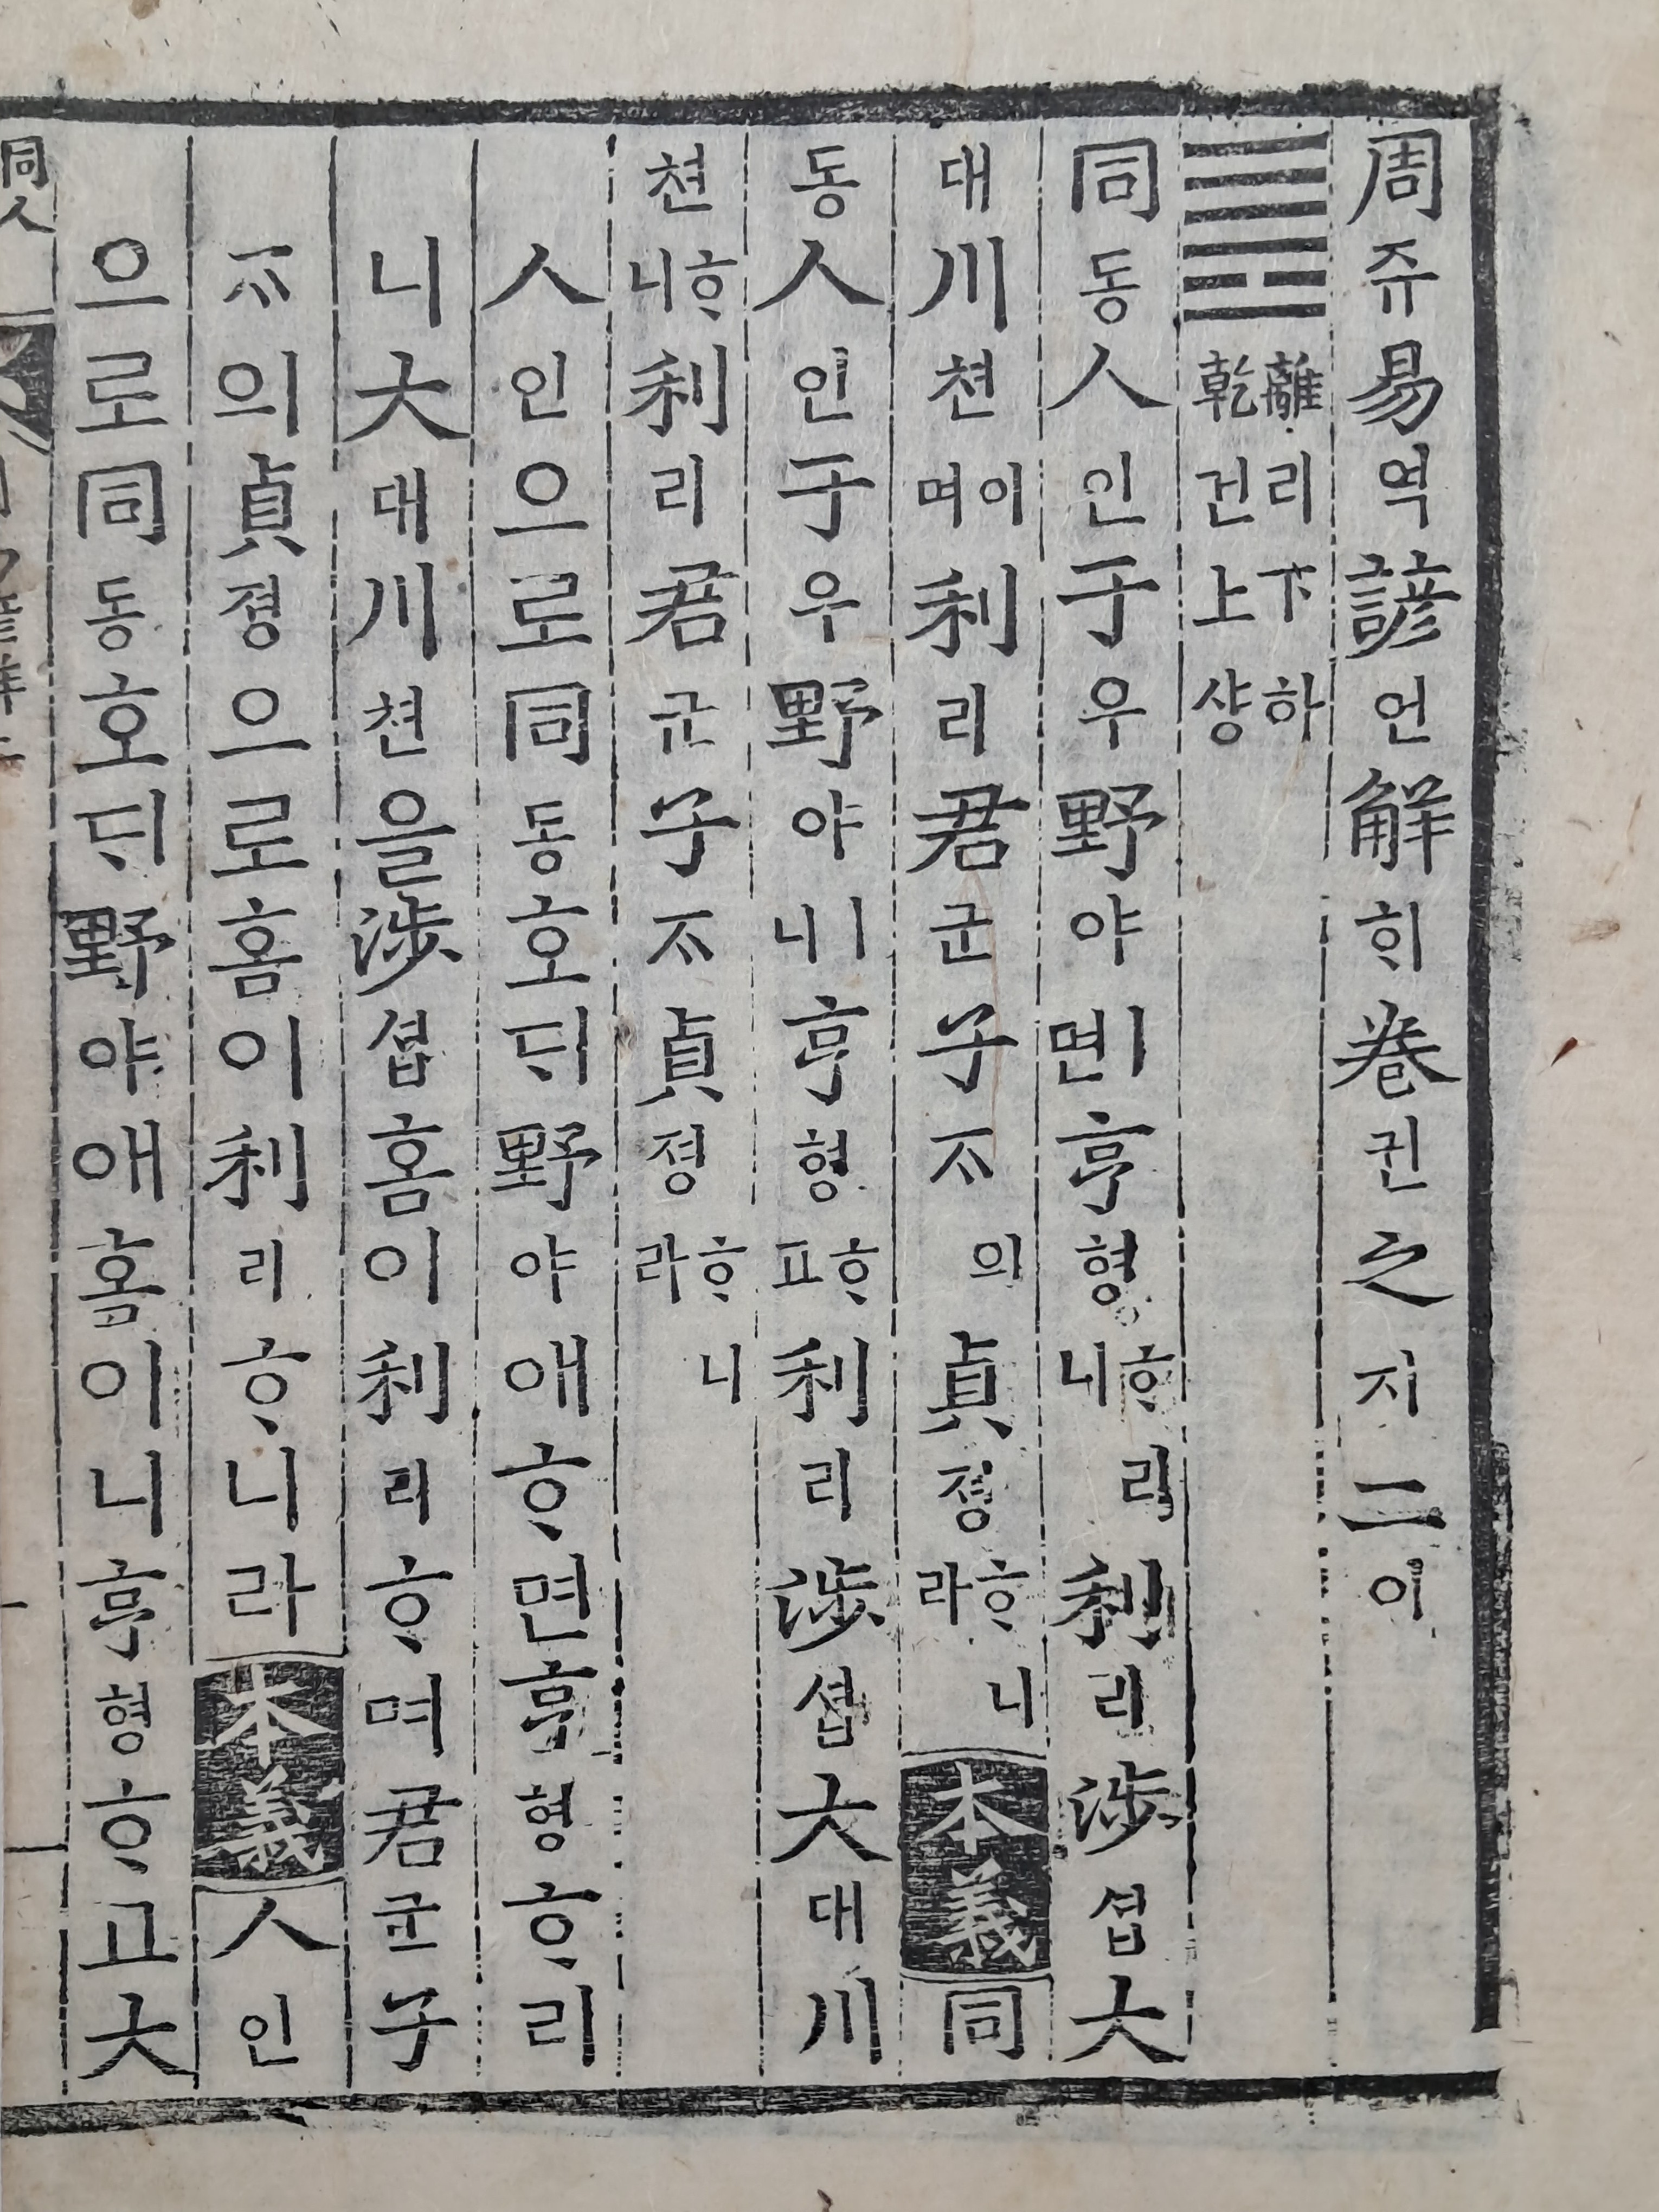 周쥬易역諺언解ᄒᆡ卷권之지二이
離리下하
乾건上샹
同동人인于우野야ㅣ면亨형ᄒᆞ리니利리涉셥大
대川쳔이며利리君군子ᄌᆞ의貞졍ᄒᆞ니라本義同
동人인于우野야ㅣ니亨형ᄒᆞ고利리涉셥大대川
쳔ᄒᆞ니利리君군子ᄌᆞ貞졍ᄒᆞ니라
人인으로同동호ᄃᆡ野야애ᄒᆞ면亨형ᄒᆞ리
니大대川쳔을涉셥홈이利리ᄒᆞ며君군子
ᄌᆞ의貞졍으로홈이利리ᄒᆞ니라本義人인
으로同동호ᄃᆡ野야애홈이니亨형ᄒᆞ고大
同人